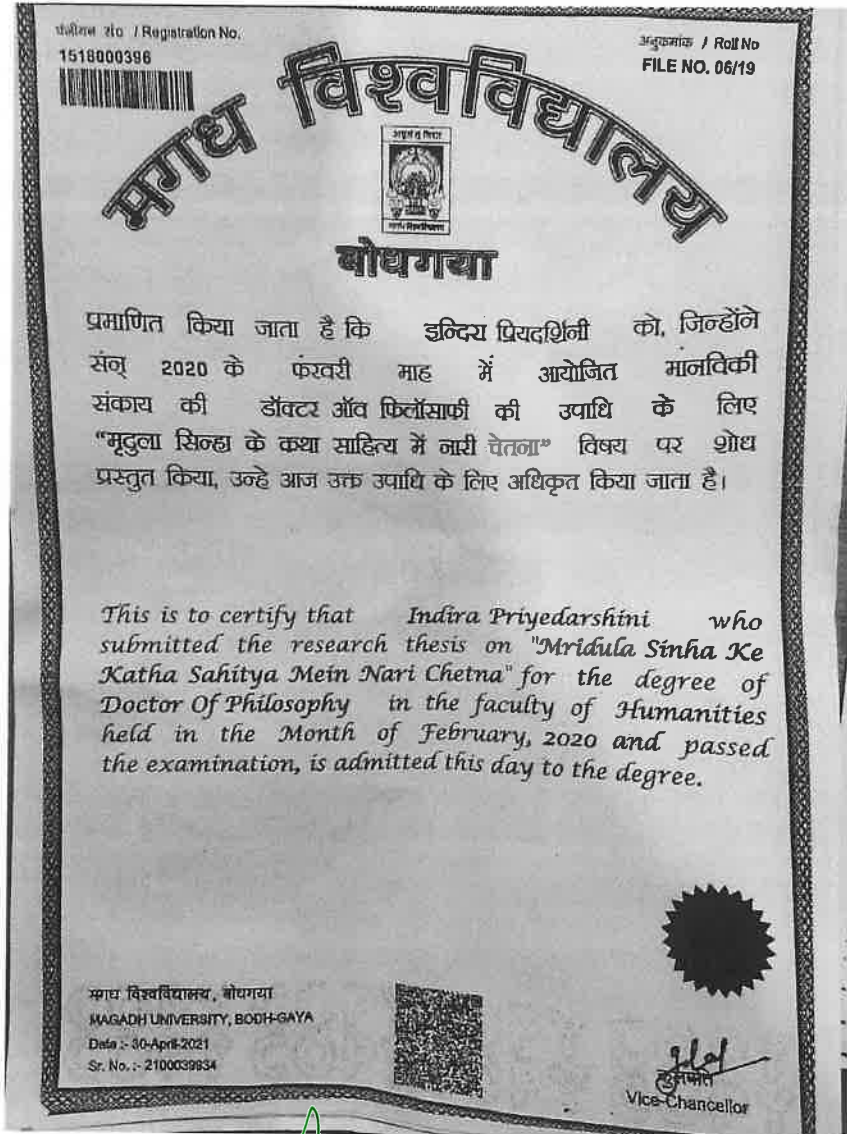 पंजीयन सं० / Registration No.
1518000396
अनुक्रमांक / Roll No
FILE NO. 06/19
मगध विश्वविद्यालय
बोधगया
प्रमाणित किया जाता है कि इन्दिरा प्रियदर्शिनी को, जिन्होंने
संन् 2020 के फरवरी माह में आयोजित मानविकी
संकाय की डॉक्टर ऑव फिलॉसाफी की उपाधि के लिए
“मृदुला सिन्हा के कथा साहित्य में नारी चेतना” विषय पर शोध
प्रस्तुत किया, उन्हे आज उक्त उपाधि के लिए अधिकृत किया जाता है।
This is to certify that Indira Priyedarshini who
submitted the research thesis on "Mridula Sinha Ke
Katha Sahitya Mein Nari Chetna" for the degree of
Doctor Of Philosophy in the faculty of Humanities
held in the Month of February, 2020 and passed
the examination, is admitted this day to the degree.
मगध विश्वविद्यालय, बोधगया
MAGADH UNIVERSITY, BODH-GAYA
Date :- 30-April-2021
Sr. No. :- 2100039834
कुलपति
Vice-Chancellor